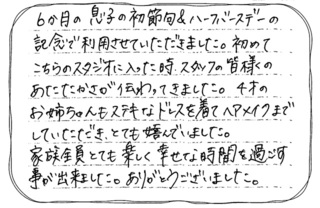 6か月の息子の初節句&ハーフバースデーの
記念で利用させていただきました。初めて
こちらのスタジオに入った時、スタッフの皆様の
あたたかさが伝わってきました。4才の
お姉ちゃんもステキなドレスを着てヘアメイクまで
していただき、とても嬉んでいました。
家族全員とても楽しく幸せな時間を過ごす
事が出来ました。ありがとうございました。